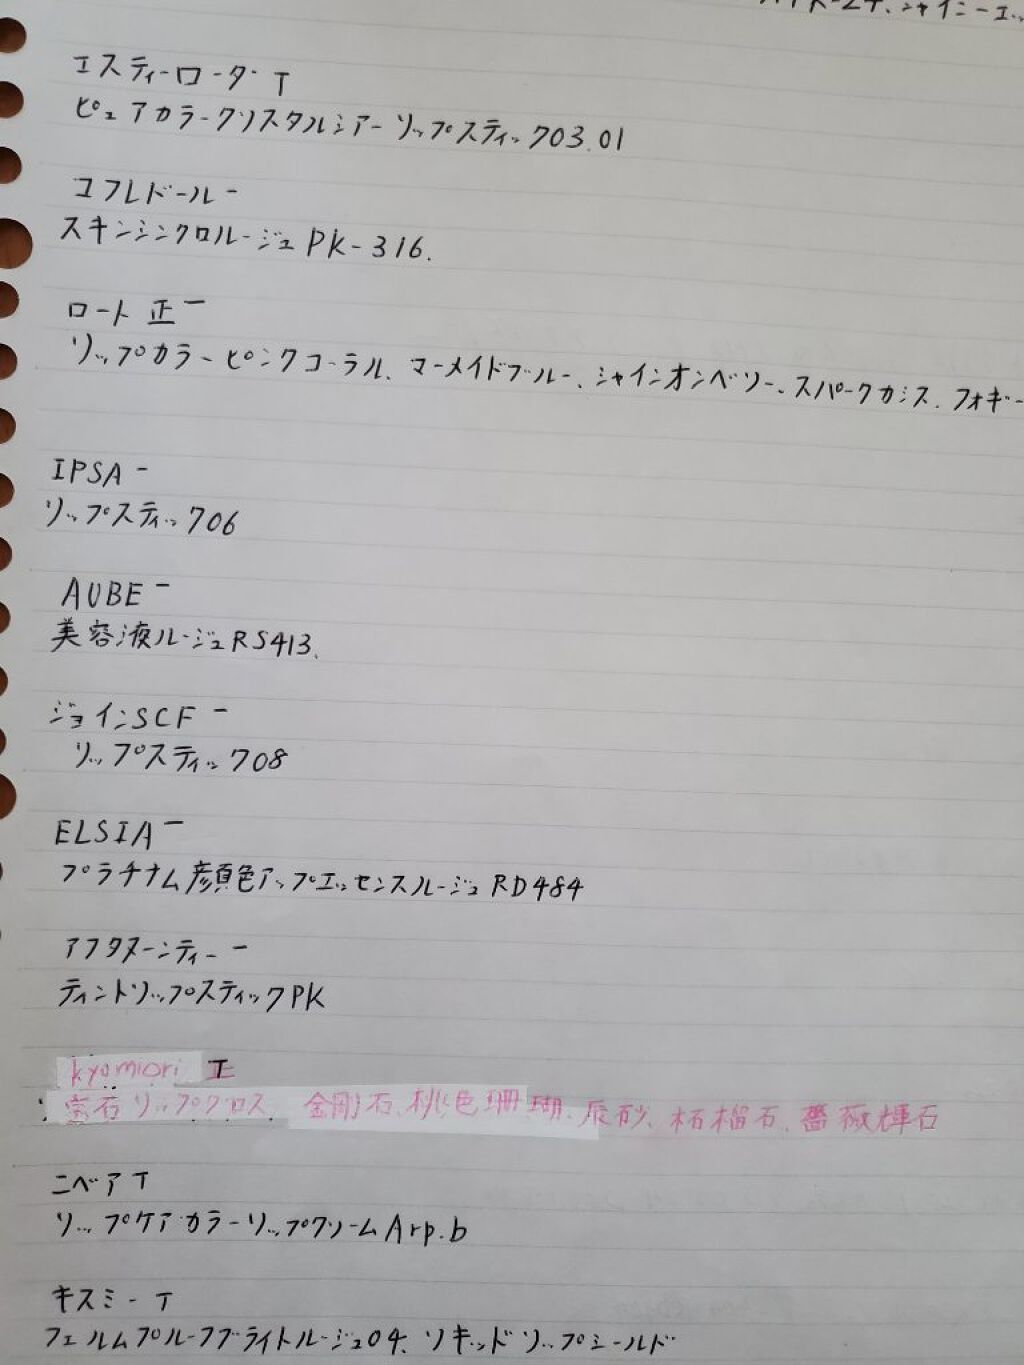 エスティーローダー T
ピュアカラークリスタルシアーリップスティック703.01
コフレドール 一
スキンシンクロルージュPK-316.
ロート 正一
リップカラーピンクコーラル、マーメイドブルー、シャインオンベリー、スパークカシス、フォギー
IPSA 一
リップスティック706
AUBE 一
美容液ルージュRS413、
ジョインSCF 一
リップスティック708
ELSIA 一
プラチナム顔色アップエッセンスルージュRD484
アフタヌーンティー 一
ティントリップスティックPK
kyomiori 正
宝石リップグロス 金剛石、桃色珊瑚、辰砂、柘榴石、薔薇輝石
ニベア T
リップケアカラーリップクリームArp.b
キスミー T
フェルムプルーフブライトルージュ04、リキッドリップシールド